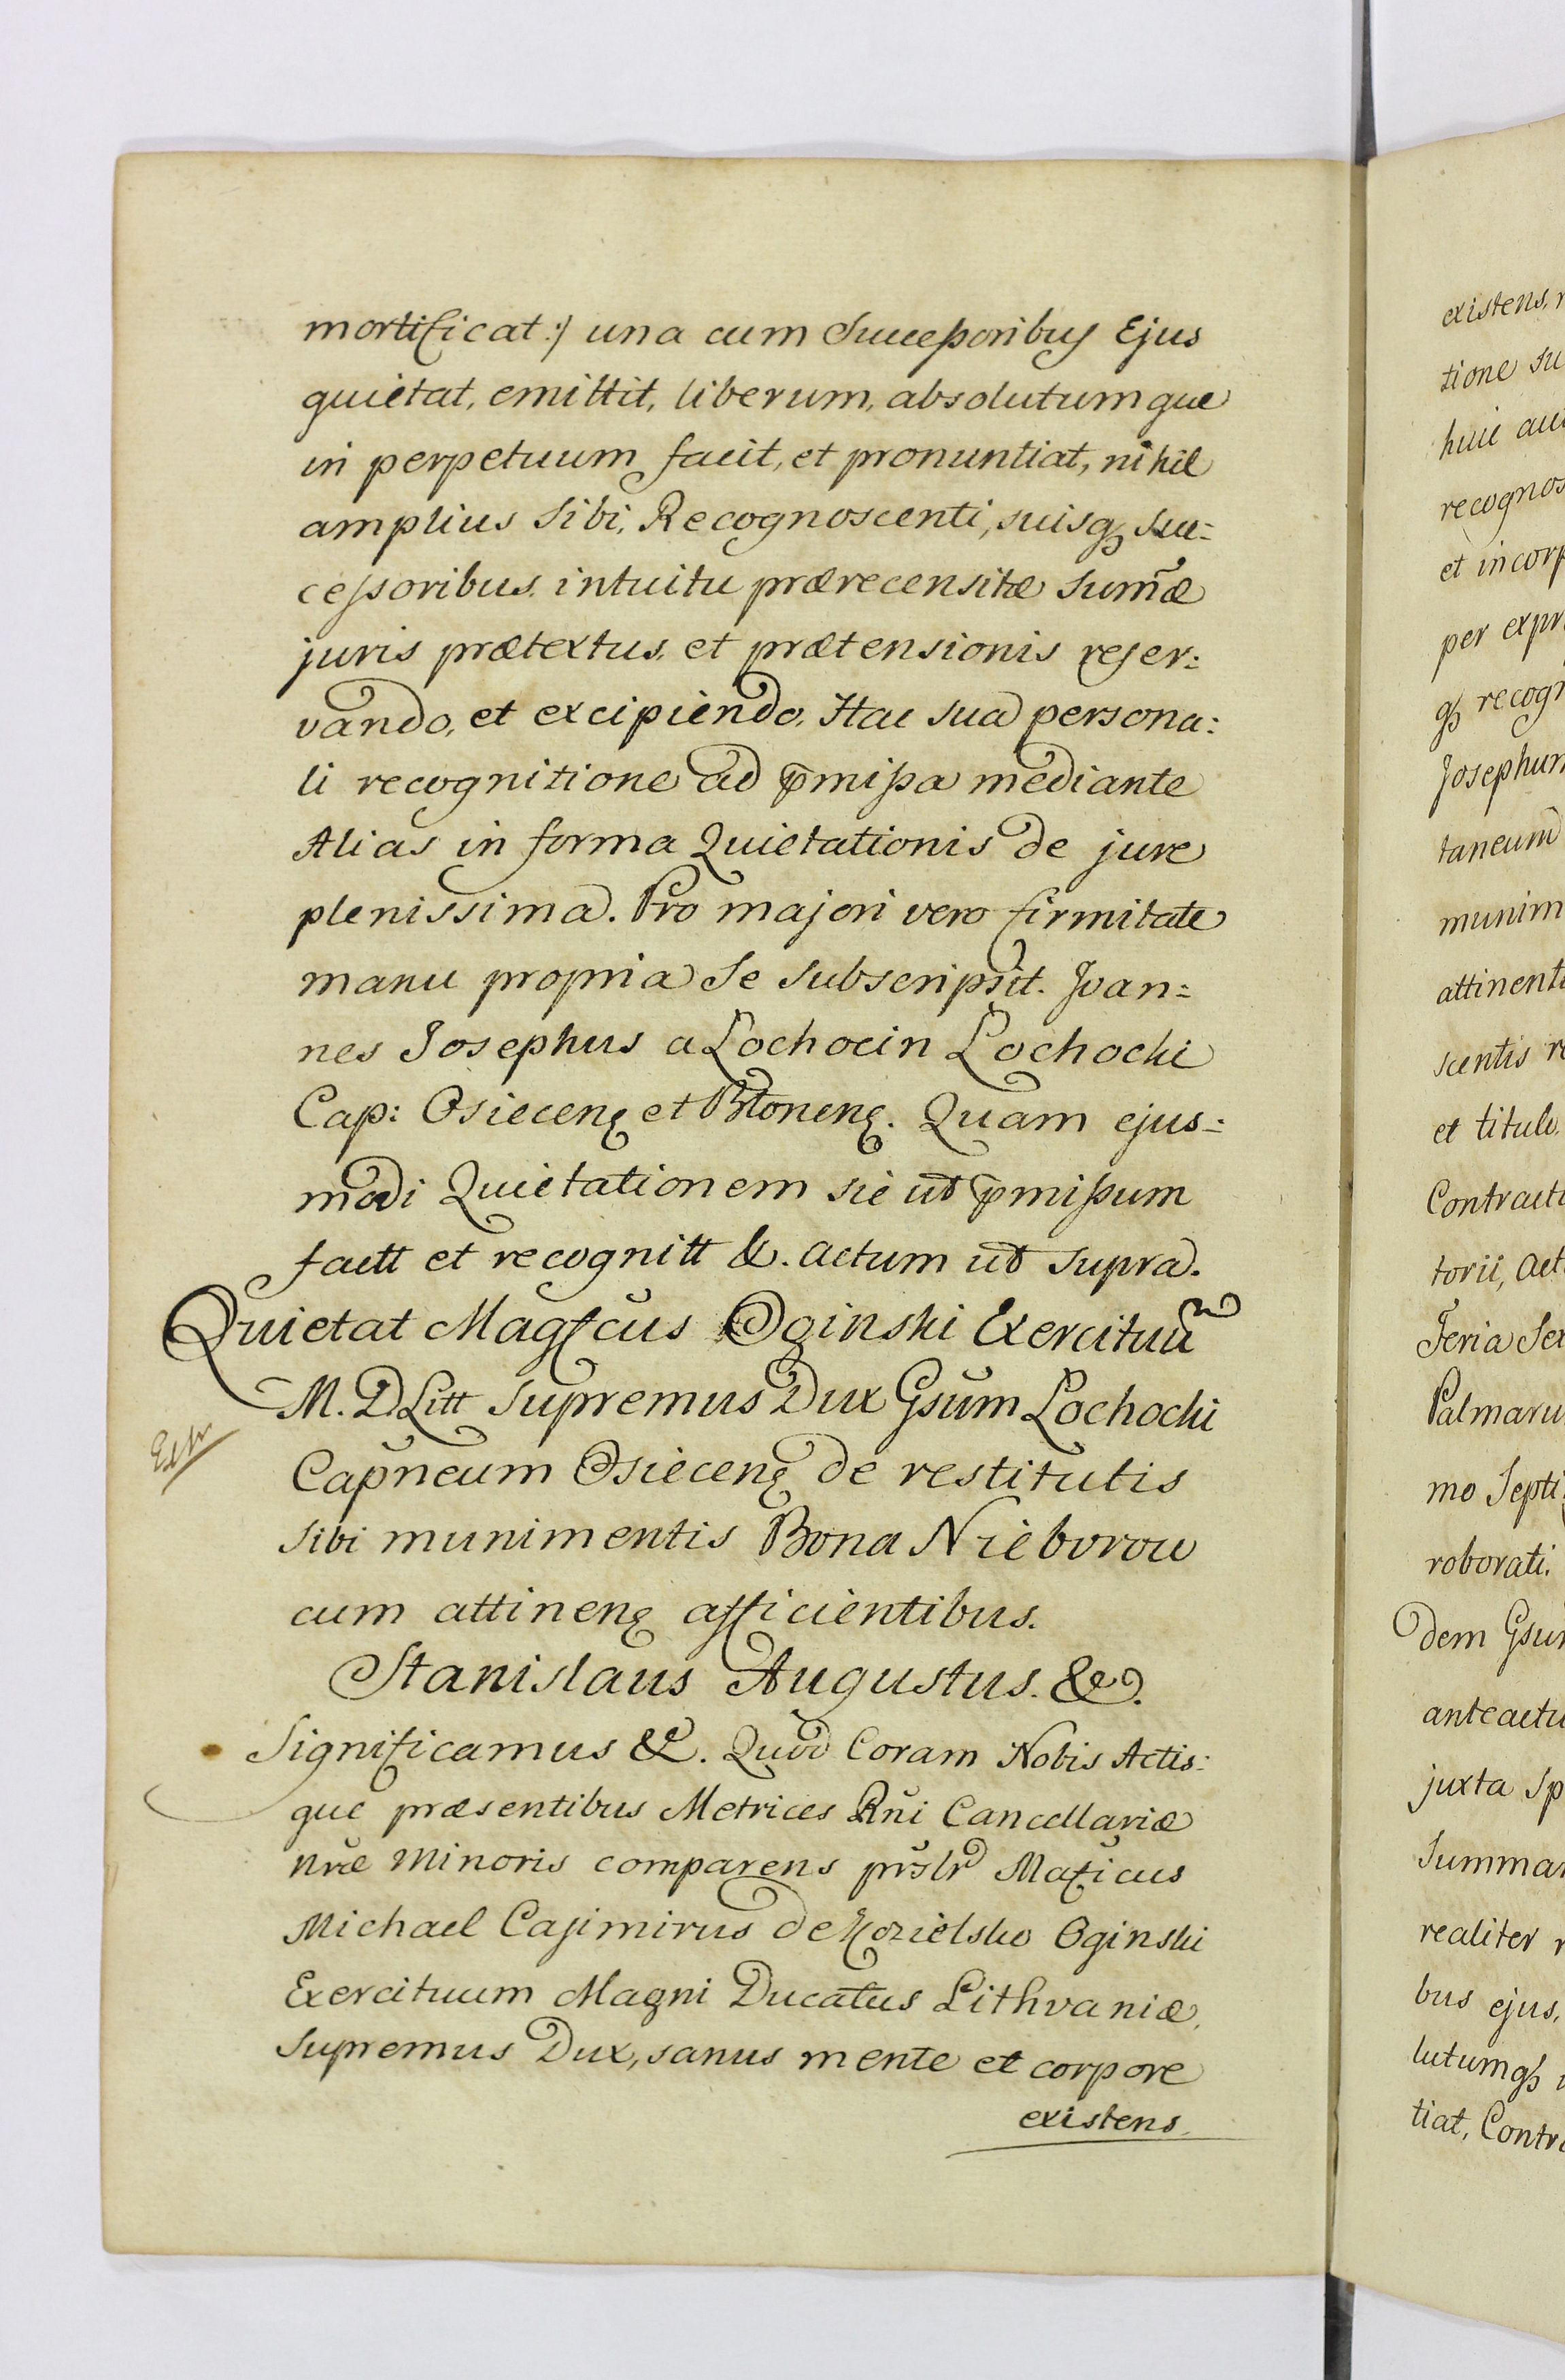 mortificat:/ una cum Successoribus Ejus
quietat, emittit, liberum, absolutumque
in perpetuum facit, et pronuntiat, nihil
amplius sibi, Recognoscenti, suisqꝫ suc=
cessoribus. intuitu prærecensitæ sum̃æ
juris prætextus, et prætensionis reser:
vando, et excipiendo, Hac sua persona:
li recognitione ad p̄missa mediante
Alias in forma Quietationis de jure
plenissima. Pro majori vero firmitate
manu propria se subscripsit. Joan=
nes Josephus a Lochocin Lochocki
Cap: Osiecenꝭ et Błonenꝭ. Quam ejus=
modi Quietationem sic ut p̄missum
facitt et recognitt &. actum ut supra.
Quietat Magfcus Oginski Exercituũ
M. D. Litt Supremus Dux Gsum Lochocki
Capñeum Osiecenꝭ de restitutis
sibi munimentis Bona Nieborow
cum attinenꝭ afficientibus.
Extr
Stanislaus Augustus. &.
Significamus &. Quod Coram Nobis Actis:
que præsentibus Metrices Rñi Cancellariæ
nræ Minoris comparens prslr Maficus
Michael Casimirus de Kozielsko Oginski
Exercituum Magni Ducatus Lithvaniæ,
Supremus Dux, sanus mente et corpore
existens
existens,
tione su
huic
recognos
et incorp
per expr
qꝫ recogn
Josephum
taneum
munim
attinenti
scentis re
et titulo
Contractu
torii, act
Feria Sex
Palmaru
mo Septi
roborati.
dem Gsum
anteactu
juxta sp
Summam
realiter
bus ejus,
lutumqꝫ
tiat, Contra